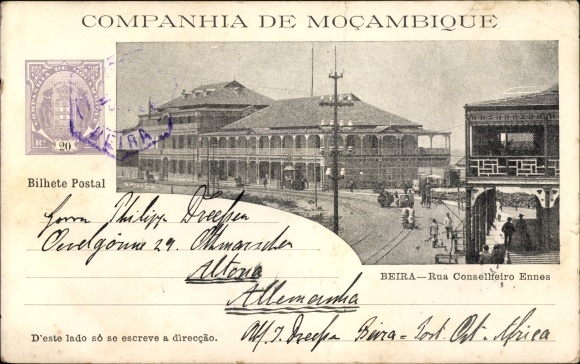 COMPANHIA DE MOÇAMBIQUE
COMPANHIA DE MOÇAMBIQUE
Rs. 20
BEIRA
Bilhete Postal
Herrn Philipp Dreesen
Oevelgönne 29. Othmarschen
Altona
Allemanha
BEIRA—Rua Conselheiro Ennes
D'este lado só se escreve a direcção.
Abs. J. Dreesen Beira = Port. Ost-Africa